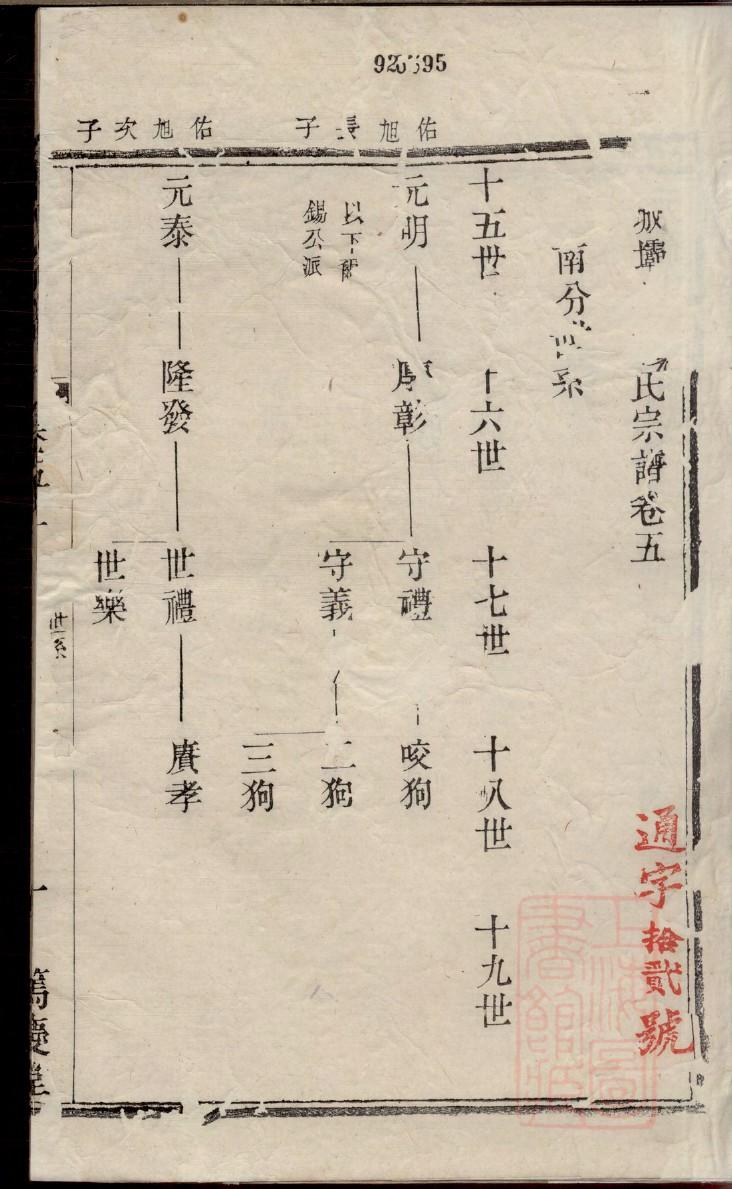 920395
氏宗譜卷五
南分世系
十五世
十六世
十七世
十八世
十九世
佑旭長子
元明
彰
守禮
咬狗
以下
錫公派
守義
二狗
三狗
佑旭次子
元泰
隆發
世禮
賡孝
世樂
世系
篤慶堂
通字拾貳號
上海圖書館藏